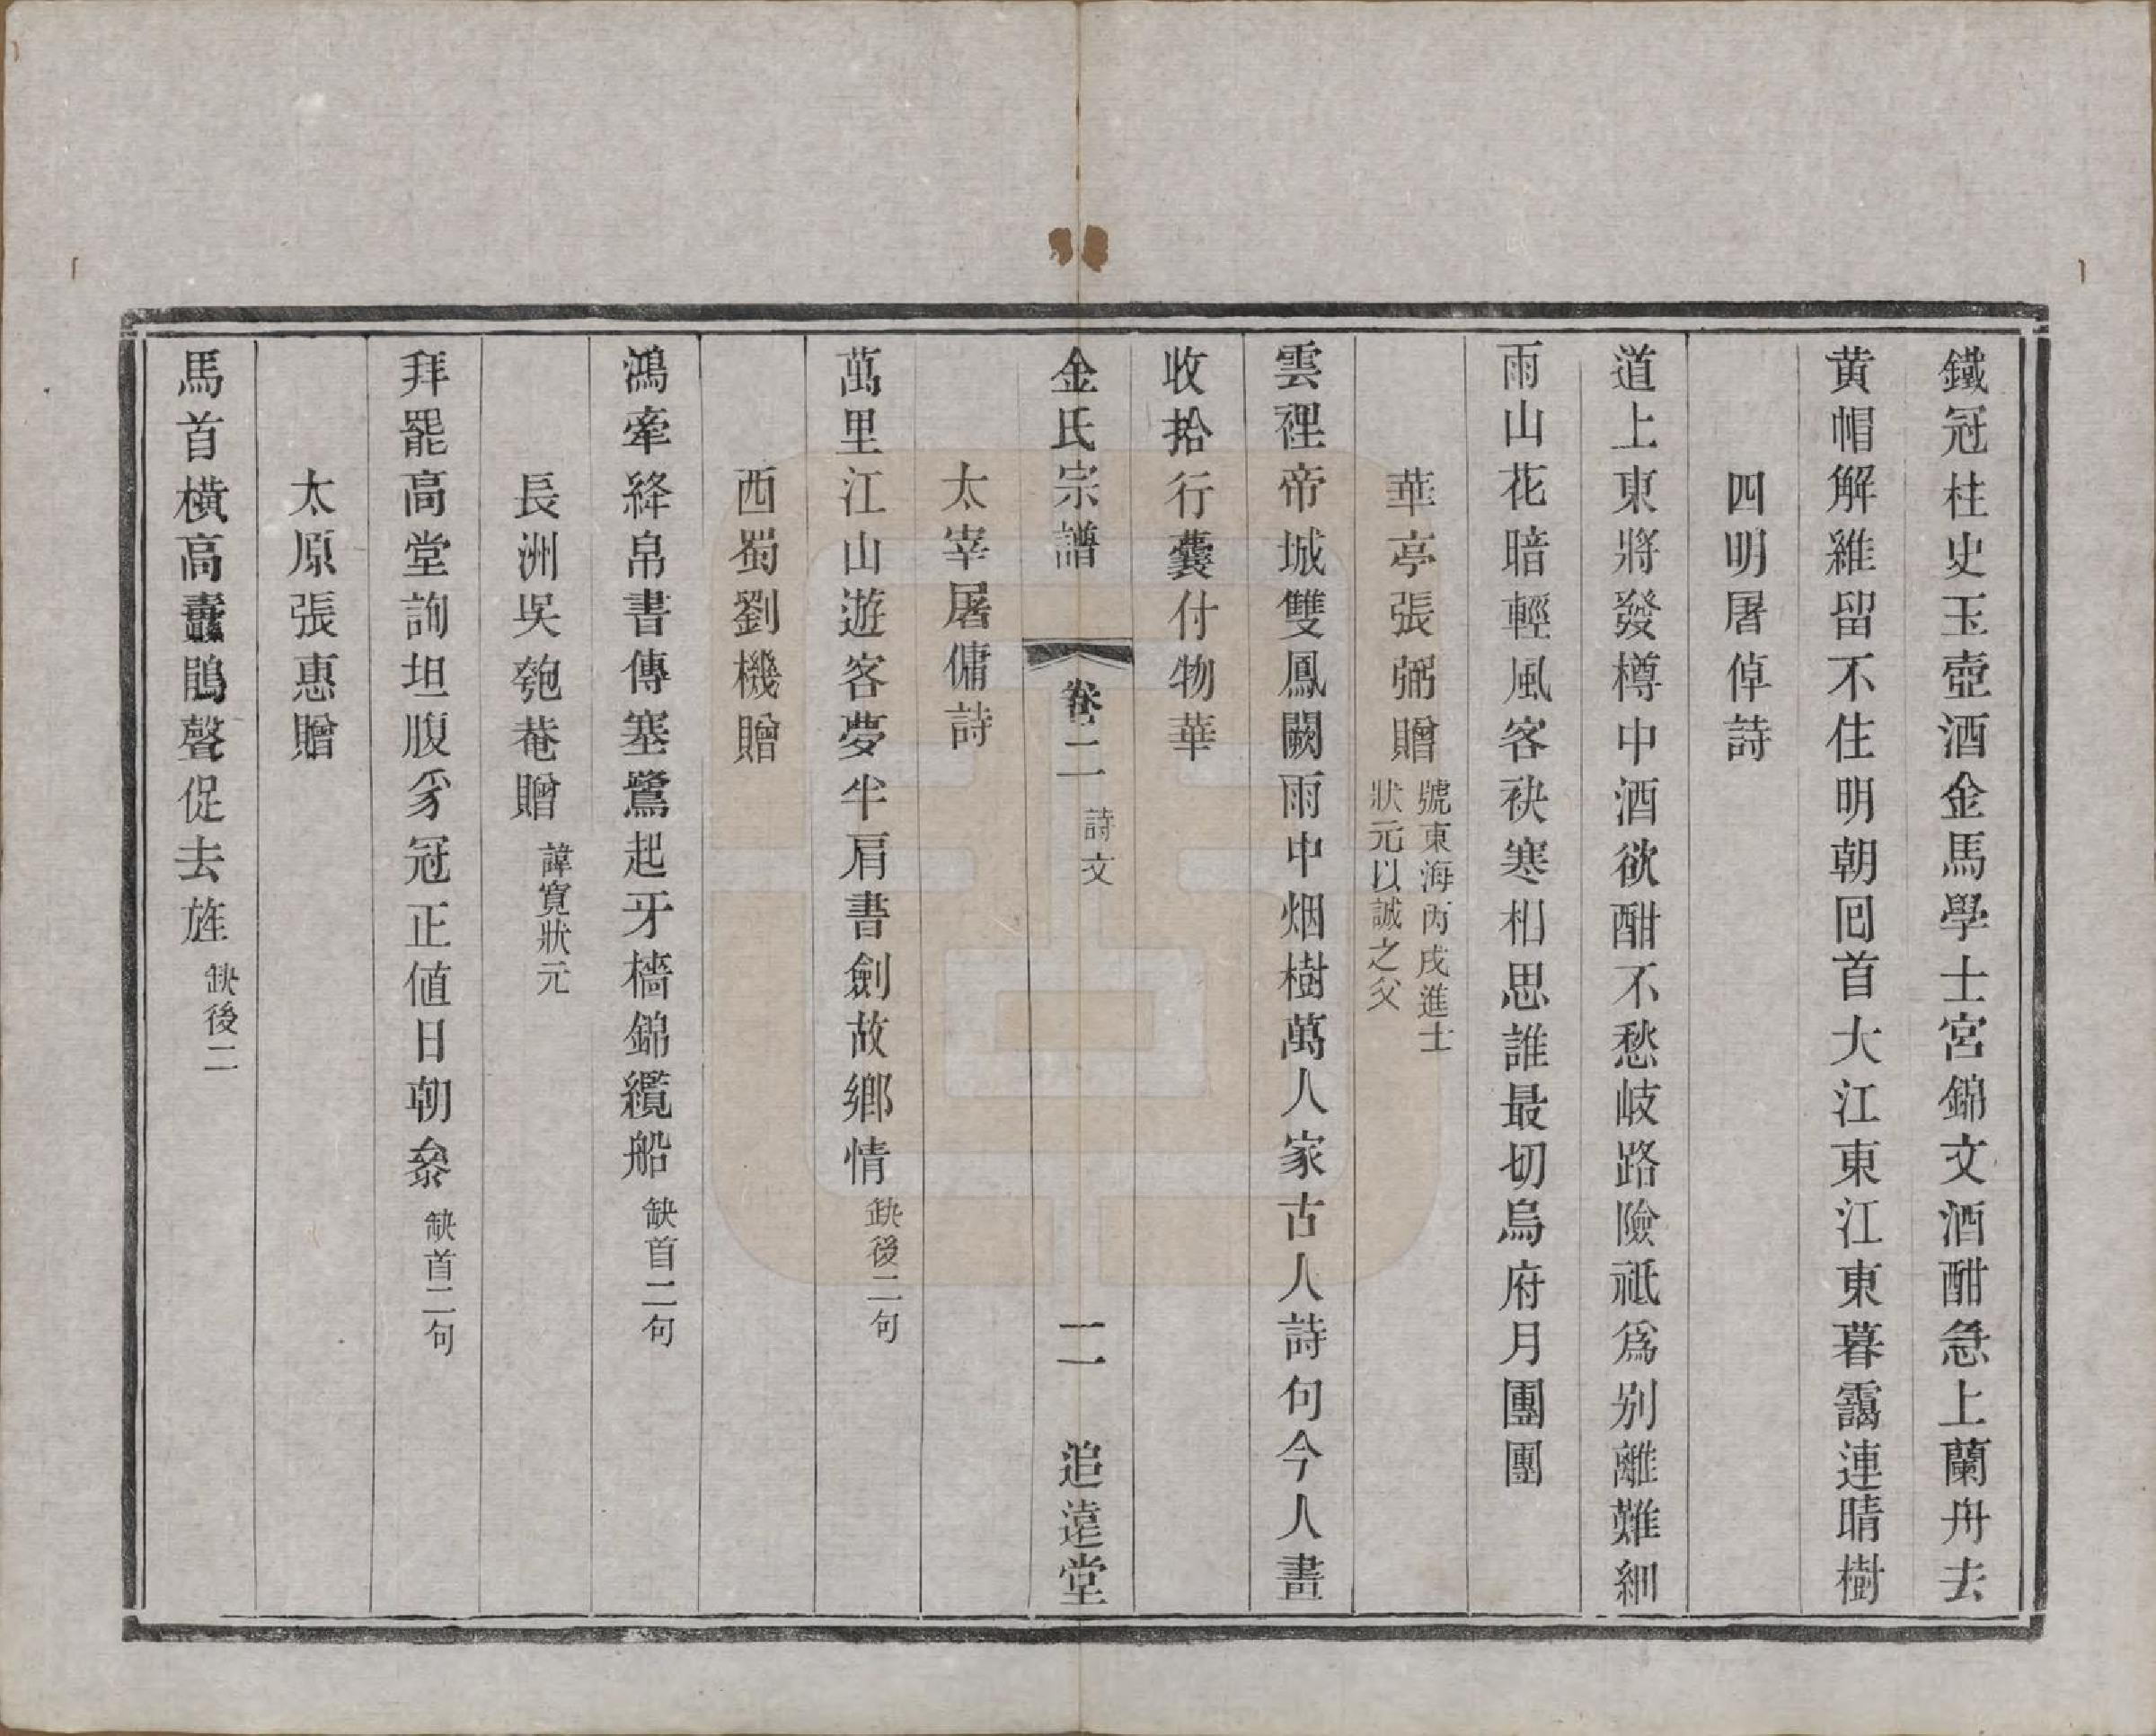 鐵冠柱史玉壺酒金馬學士宮錦文酒酣急上蘭舟去
黄帽解維留不住明朝囘首大江東江東暮靄連晴樹
四明屠倬詩
道上東將發樽中酒欲酣不愁岐路險祗爲别離難細
雨山花暗輕風客袂寒相思誰最切烏府月團團
華亭張弼贈
號東海丙戌進士
狀元以誠之父
雲裡帝城雙鳳闕雨中烟樹萬人家古人詩句今人畫
收拾行囊付物華
金氏宗譜 卷二 詩文 二 追遠堂
太宰屠傭詩
萬里江山遊客夢半肩書劍故鄉情 缺後二句
西蜀劉機贈
鴻牽絳帛書傳塞鷺起牙檣錦纜船 缺首二句
長洲吳匏菴贈 諱寛狀元
拜罷高堂詢坦腹豸冠正値日朝叅 缺首二句
太原張惠贈
馬首横高纛鵑聲促去旌 缺後二